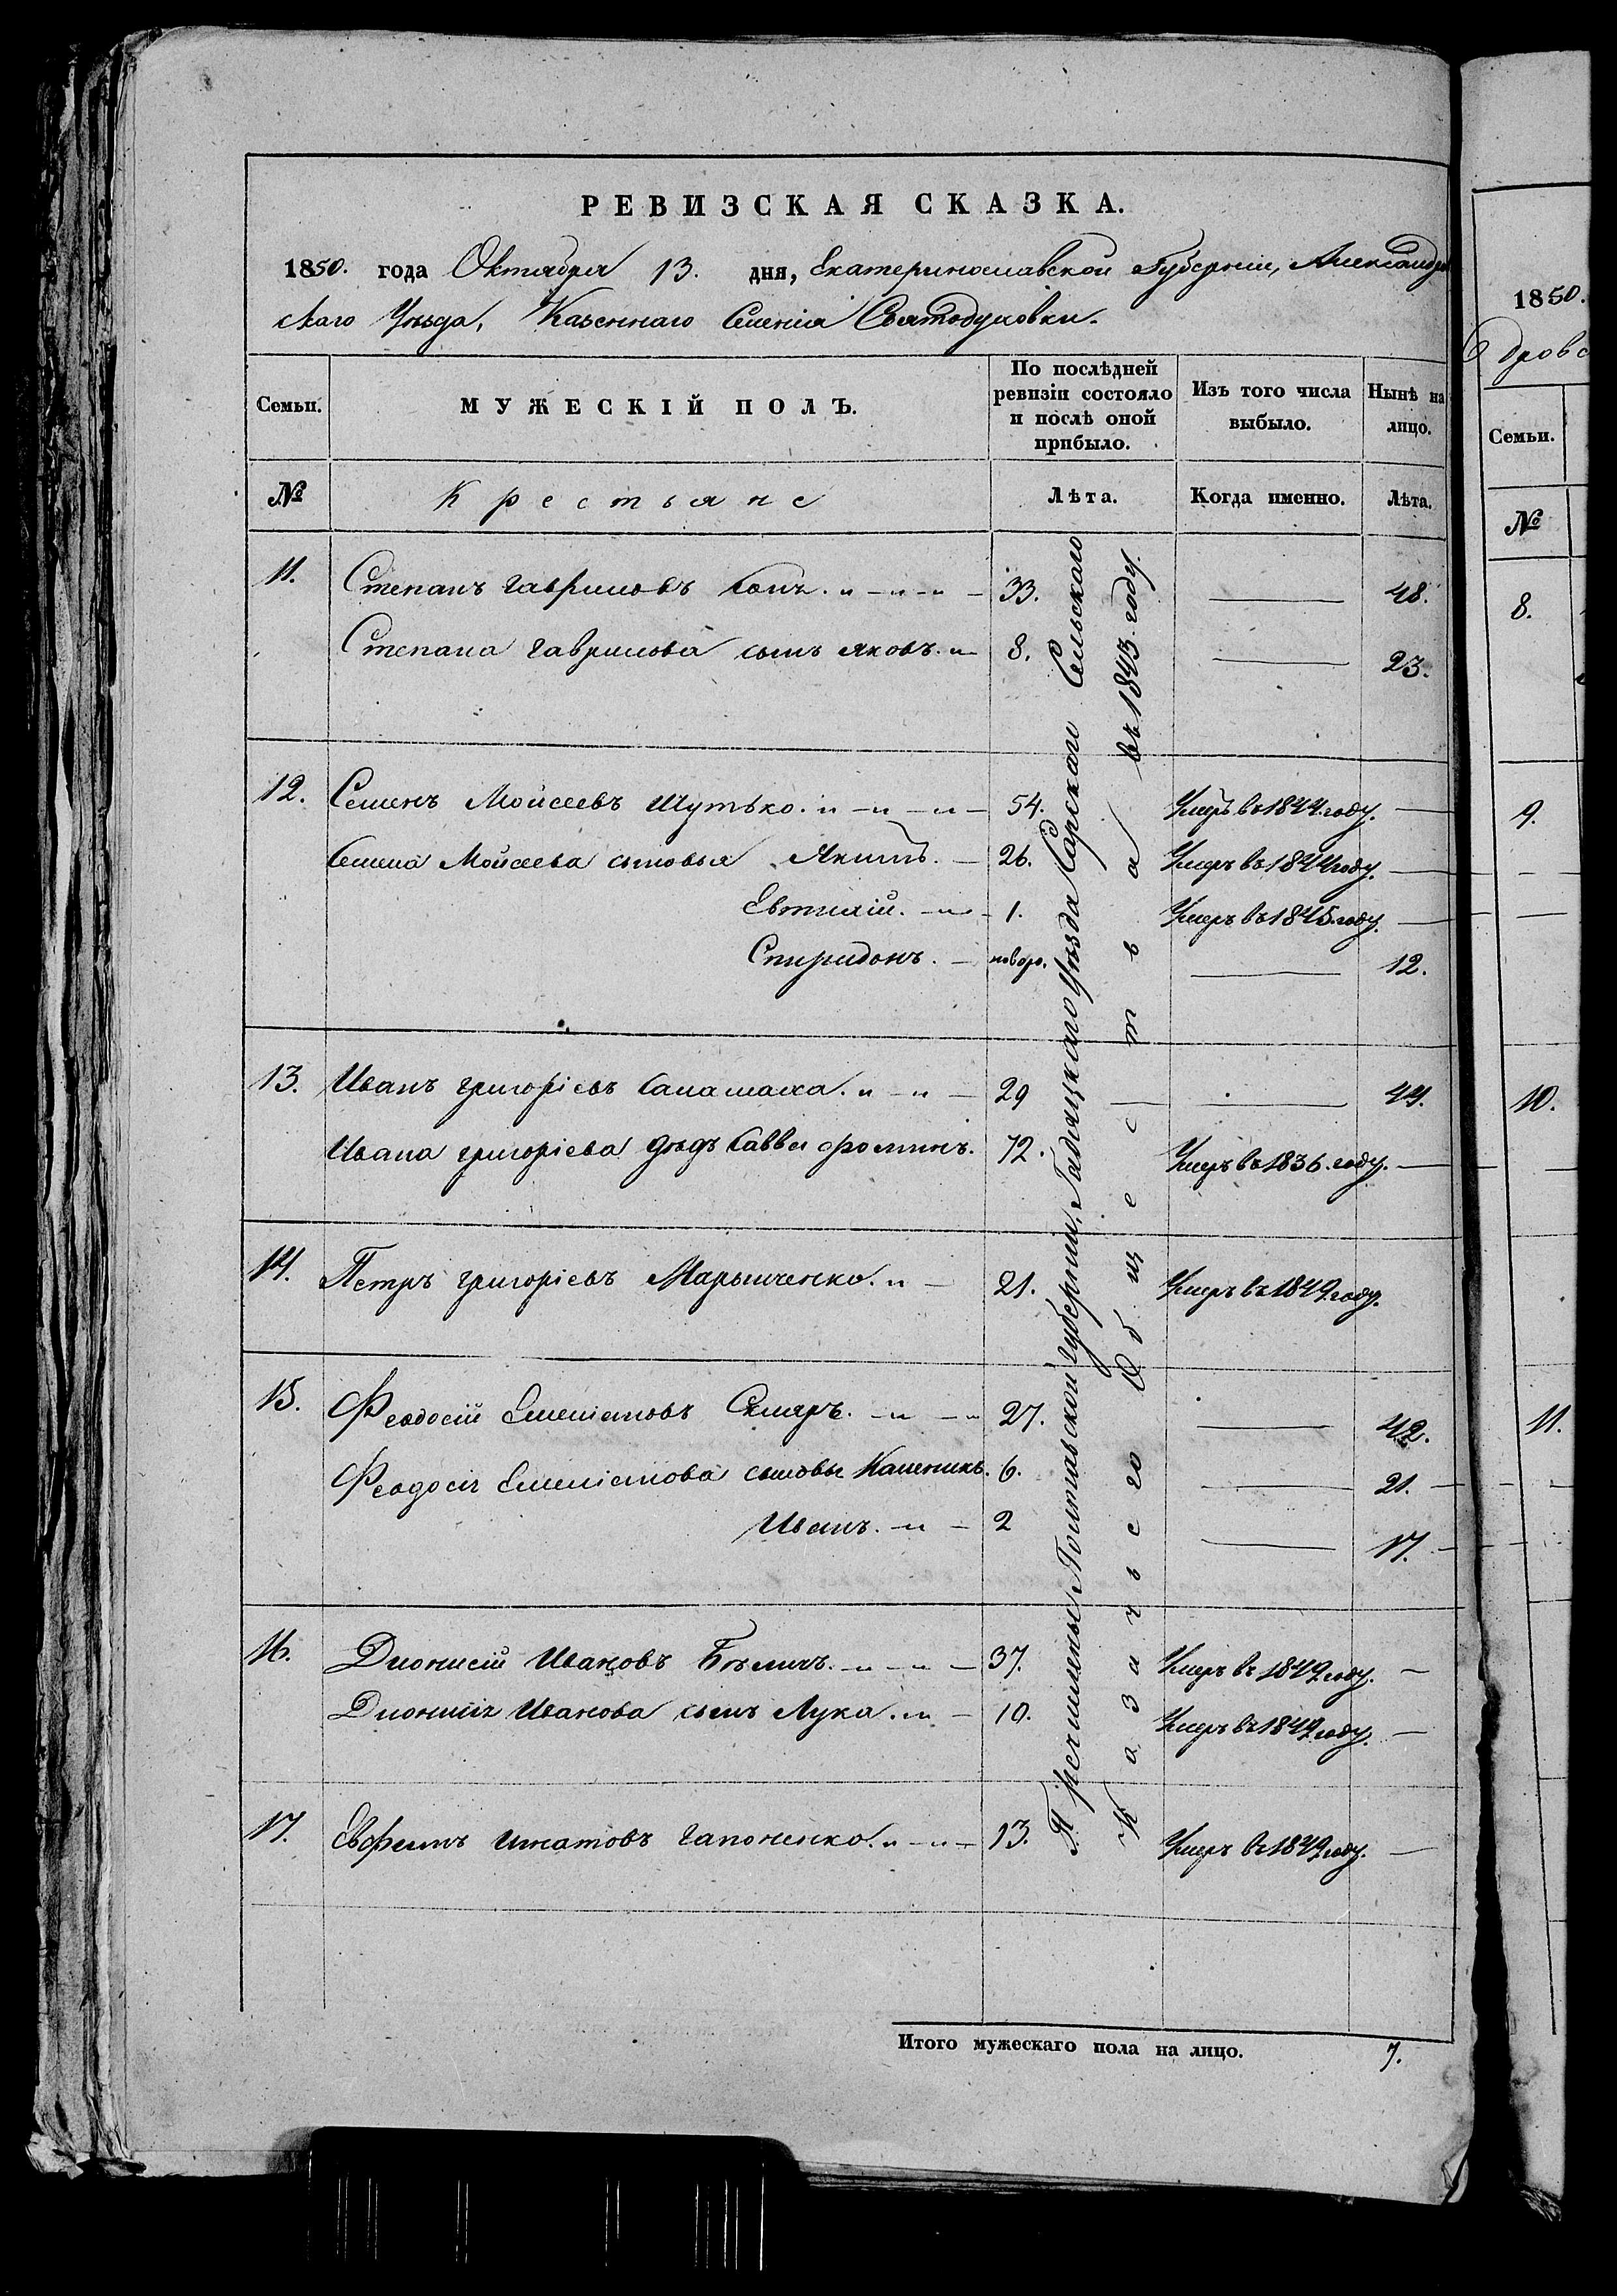 РЕВИЗСКАЯ СКАЗКА.
1850. года Октября 13. дня, Екатеринославской Губерніи, Александров
скаго Уѣзда, Казеннаго Селенія Святодуховки.
Семьи. МУЖЕСКІЙ ПОЛЪ. По послѣдней ревизіи состояло и послѣ оной прибыло. Изъ того числа выбыло. Нынѣ на лицо.
№ Крестьяне Лѣта. Когда именно. Лѣта.
11. Степанъ Гавриловъ 33. — 48.
Степана Гаврилова сынъ Яковъ. 8. — 23.
12. Семенъ Моисеевъ Шутько. 54. Умеръ въ 1844. году. —
Семена Моисеева сыновья Якимъ. 26. Умеръ въ 1844 году. —
Евтихій. 1. Умеръ въ 1845. году. —
Спиридонъ. новоро. — 12.
13. Иванъ Григорьевъ Саламаха. 29 — 44.
Ивана Григорьева дѣдъ Савва Фоминъ. 72. Умеръ въ 1836. году. —
14. Петръ Григорьевъ Марыиченко. 21. Умеръ въ 1849. году.
15. Феодосій Емеліановъ Скляръ. 27. — 42.
Феодосія Емеліанова сыновья Каленикъ. 6. — 21.
Иванъ. 2 — 17.
16. Дионисій Ивановъ Бѣличъ. 37. Умеръ въ 1849. году. —
Дионисія Иванова сынъ Лука. 10. Умеръ въ 1849. году. —
17. Евфимъ Игнатовъ Гапоненко. 13. Умеръ въ 1849. году. —
Причислены Полтавской Губерніи, Гадяцкаго Уѣзда Сарскаго Сельскаго
Казачьего Общества въ 1843. году.
Итого мужескаго пола на лицо. 7.
1850.
дровс
Семьи.
№
8.
9.
10.
11.